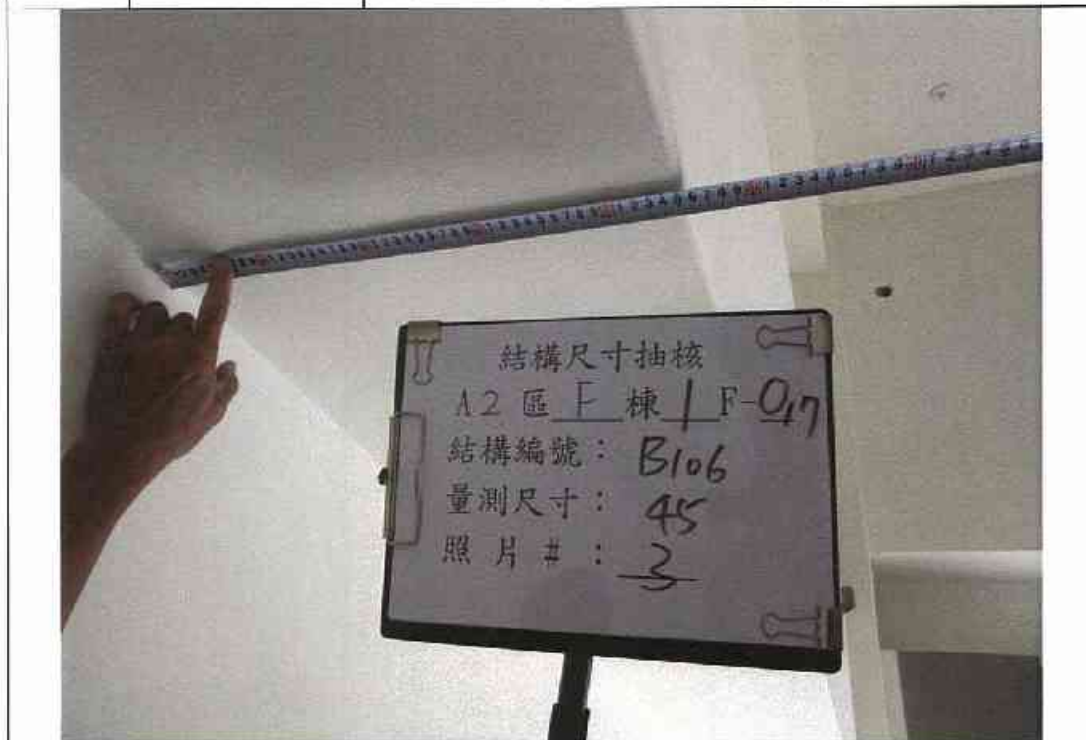 結構尺寸抽核
A2區 F 棟 1 F-017
結構編號：B106
量測尺寸：45
照片#：3